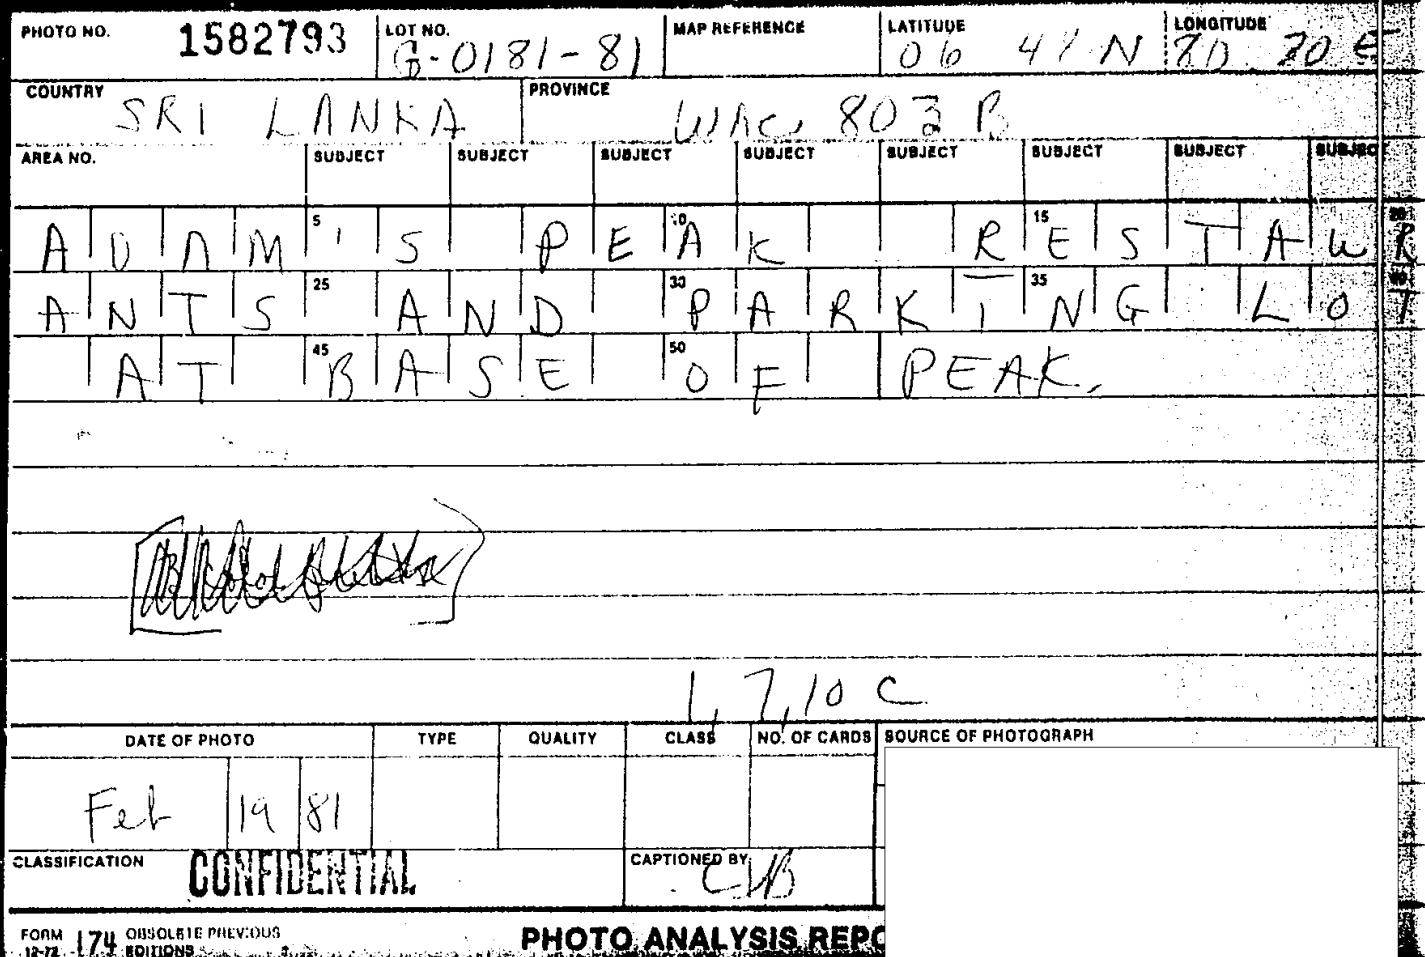 PHOTO NO. 1582793 LOT NO. G-0181-81 MAP REFERENCE LATITUDE 06 47 N LONGITUDE 80 30 E
COUNTRY SRI LANKA PROVINCE WAC 803 B
AREA NO. SUBJECT SUBJECT SUBJECT SUBJECT SUBJECT SUBJECT SUBJECT SUBJECT
5 10 15 20
ADAM'S PEAK RESTAUR
25 30 35 40
ANTS AND PARKING LOT
45 50
AT BASE OF PEAK.
1, 7, 10 C
DATE OF PHOTO TYPE QUALITY CLASS NO. OF CARDS SOURCE OF PHOTOGRAPH
Feb 19 81
CLASSIFICATION CONFIDENTIAL CAPTIONED BY
FORM 12-72 174 OBSOLETE PREVIOUS EDITIONS PHOTO ANALYSIS REPO